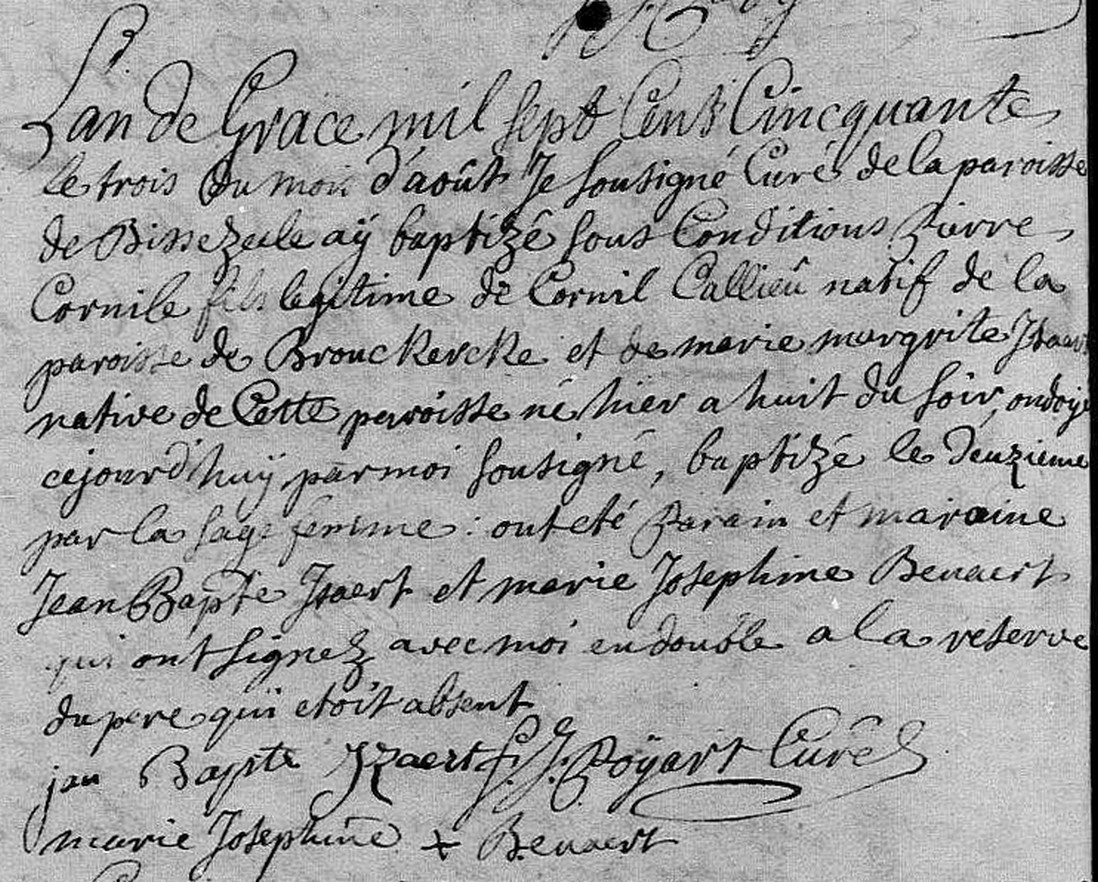 L'an de Grace mil sept Cent Cincquante
le trois du mois d'août Je sousigné Curé de la paroisse
de Bissezeele aÿ baptizé sous Conditions Pierre
Cornile fils legitime de Cornil Callieu natif de la
paroisse de Brouckercke et de marie margrite Isaert
native de Cette paroisse né hier a huit du soir, ondoyé
cejourd'huÿ par moi sousigné, baptizé le deuzieme
par la sage femme : ont eté Parain et maraine
Jean Bapte Isaert et marie Josephine Benaert
qui ont signez avec moi en double a la reserve
du pere qui etoit absent
jan Bapte Yzaert f. J. Poÿart Curé
marie Josephine + Benaert